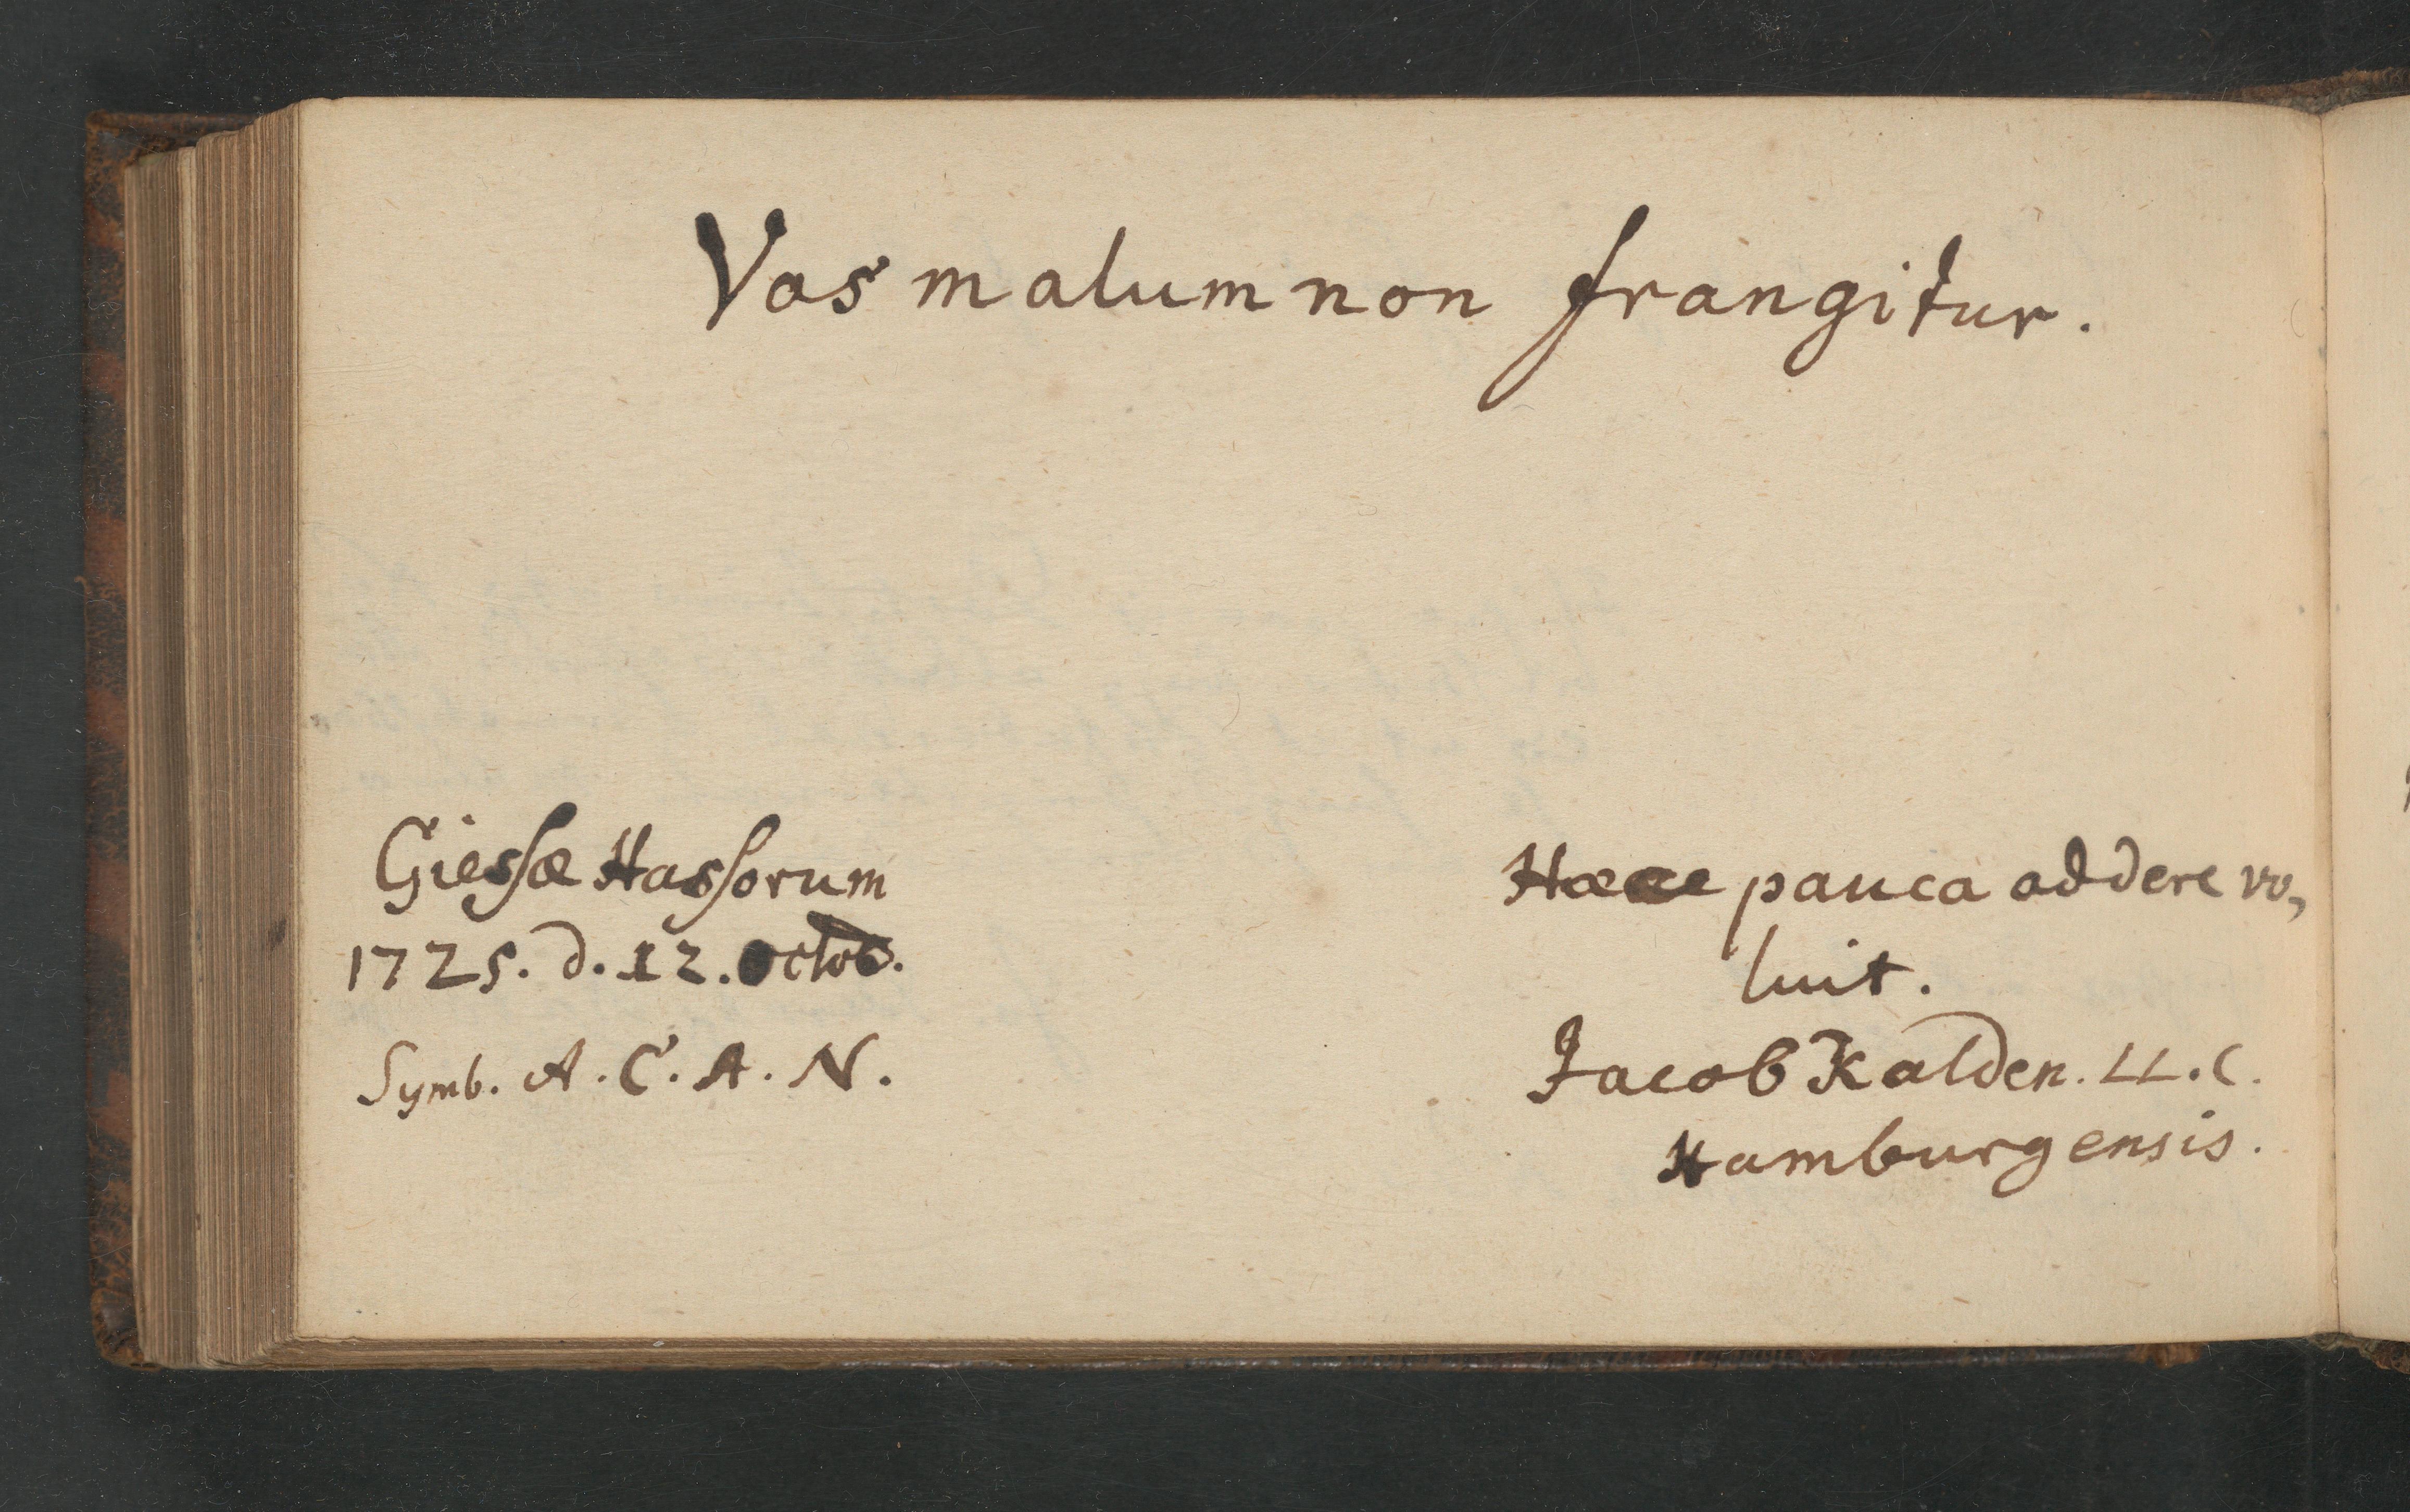 Vas malum non frangitur.
Giessæ Hassorum
1725. d. 12. Octob.
Symb. A. C. A. N.
Haece pauca addere vo,
luit.
Jacob Kalden. LL. C.
Hamburgensis.